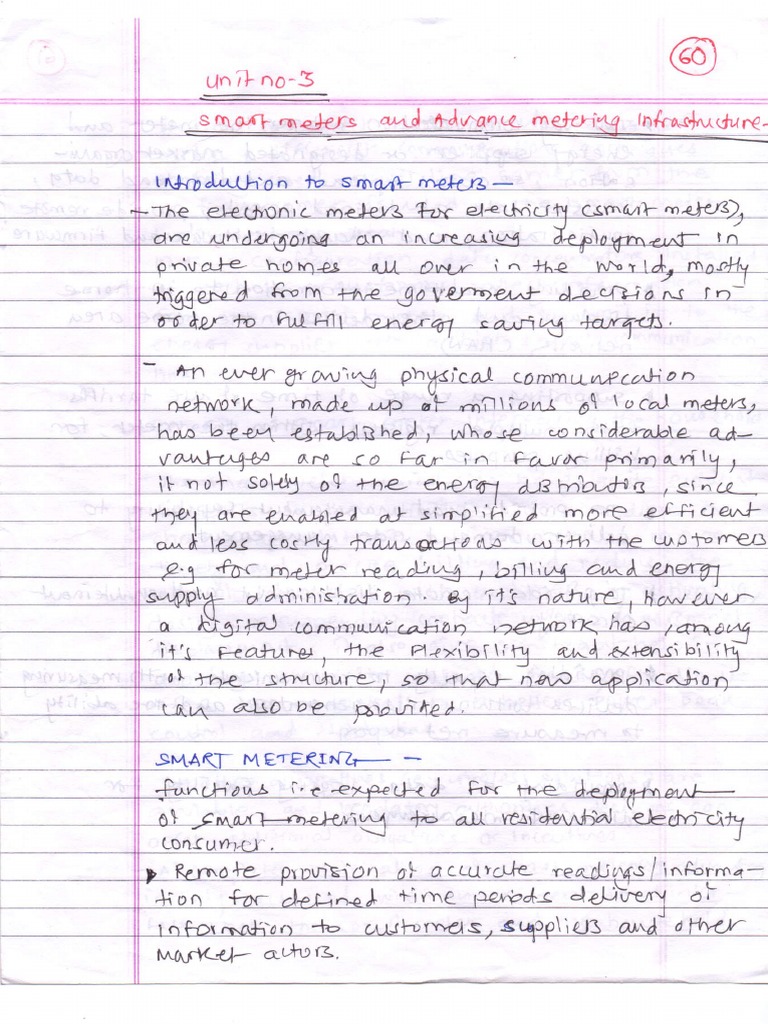 60
Unit no-3
Smart meters and Advance metering Infrastructure-
Introduction to smart meters -
- The electronic meters for electricity (smart meters),
are undergoing an increasing deployment in
private homes all over in the world, mostly
triggered from the goverment decisions in
order to fulfill energy saving targets.
- An ever growing physical communication
network, made up of millions of local meters,
has been established, whose considerable ad-
vantages are so far in favor primarily,
if not solely of the energy distributors, since
they are enabled at simplified more efficient
and less costly transactions with the customers
e.g for meter reading, billing and energy
supply administration. By it's nature, however
a digital communication network has, among
it's features, the flexibility and extensibility
of the structure, so that new application
can also be provided.
SMART METERING -
functions i.e expected for the deployment
of smart metering to all residential electricity
consumer.
Remote provision of accurate readings/informa-
tion for defined time periods delivery of
information to customers, suppliers and other
market actors.